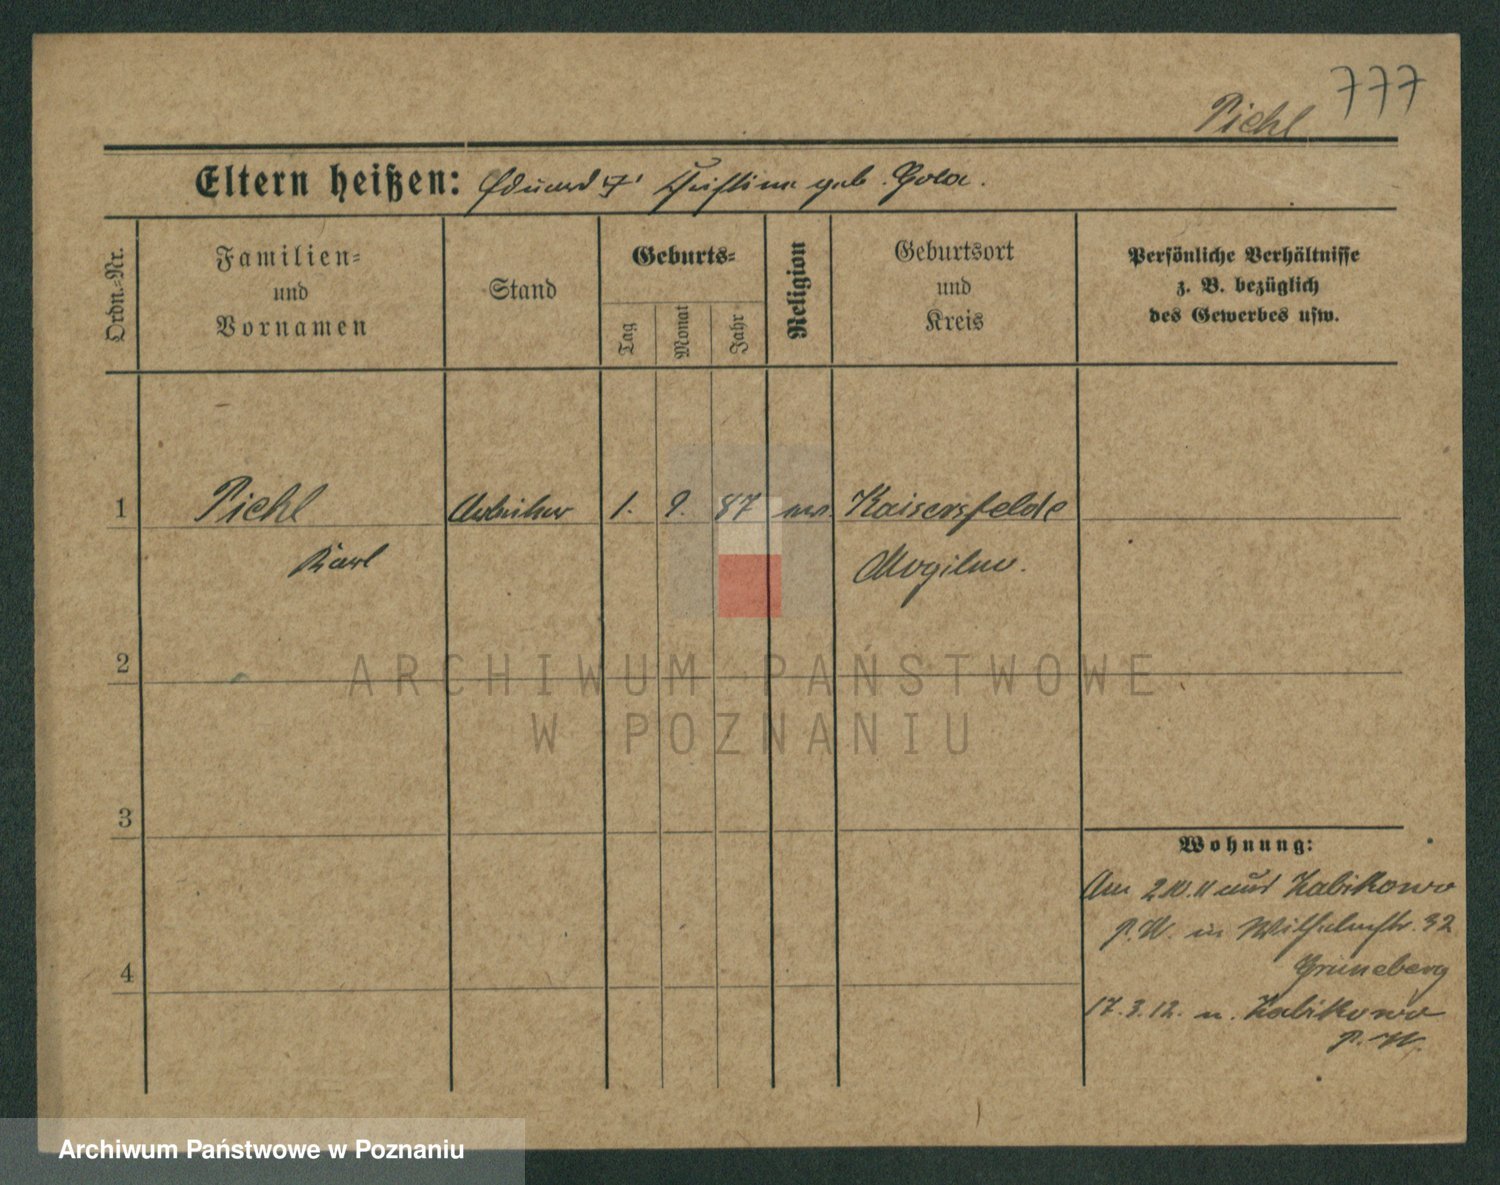 777
Piehl
Eltern heißen: Eduard u. Christine geb. Gola.
Ordn.-Nr.
Familien-
und
Vornamen
Stand
Geburts-
Tag
Monat
Jahr
Religion
Geburtsort
und
Kreis
Persönliche Verhältnisse
z. B. bezüglich
des Gewerbes usw.
1 Piehl Arbeiter 1. 9. 87 ev. Kaisersfelde
Karl Mogilno.
2
ARCHIWUM PAŃSTWOWE
W POZNANIU
3
Wohnung:
Am 2.10.11 aus Zabikowo
P.W. in Wilhelmstr. 32
4
Grüneberg
17.3.12. n. Zabikowo
P.W.
Archiwum Państwowe w Poznaniu